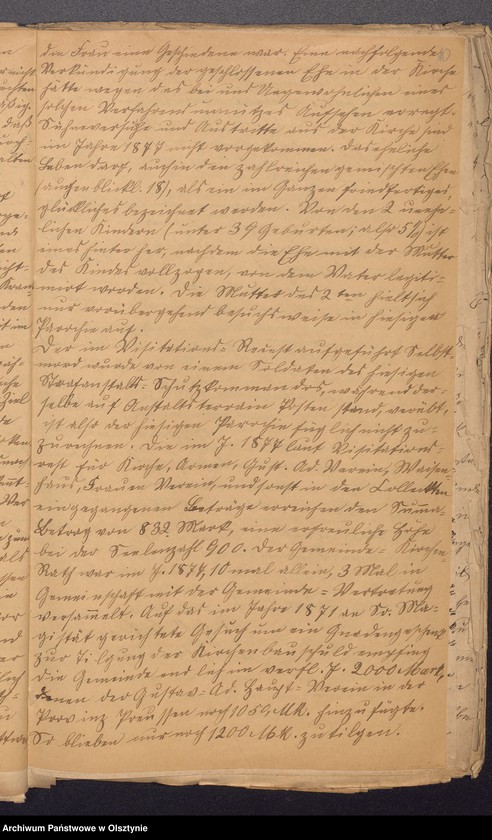 die Frau eine Geschiedene war. Eine nachfolgende
Verkündigung der geschlossenen Ehe in der Kirche
hätte wegen des bei uns Ungewohnlichen eines
solchen Verfahrens unnützes Aufsehen erregt.
Sühneversuche und Austritte aus der Kirche sind
im Jahre 1877 nicht vorgekommen. Das eheliche
Leben darf, auch in den zahlreichen gemischten Ehen
(augenblickl. 18), als ein im Ganzen friedfertiges,
glückliches bezeichnet werden. Von den 2 unehe-
lichen Kindern (unter 39 Geburten, also 5%) ist
eines hinterher, nachdem die Ehe mit der Mutter
des Kindes vollzogen, von dem Vater legiti-
mirt worden. Die Mutter des 2ten hielt sich
nur vorübergehend besuchsweise in hiesiger
Parochie auf.
Der im Visitations-Recess aufgeführte Selbst-
mord wurde von einem Soldaten des hiesigen
Strafanstalts-Schutzkommandos, während der-
selbe auf Anstaltsterrain Posten stand, verübt,
ist also der hiesigen Parochie füglich nicht zu-
zurechnen. Die im J. 1877 laut Visitations-
rest für Kirche, Armen, Gust. Ad. Verein, Waisen-
haus, Frauen Verein, und sonst in den Collekten
eingegangenen Beträge erreichen den Summa-
Betrag von Mark, eine erfreuliche Höhe
bei der Seelenzahl 900. Der Gemeinde-Kirchen-
Rath war im J. 1877, 10 mal allein, 3 Mal in
Gemeinschaft mit der Gemeinde-Vertretung
versammelt. Auf das im Jahre 1871 an Se. Ma-
jestät gerichtete Gesuch um ein Gnadengeschenk
zur Tilgung der Kirchenbauschuld empfing
die Gemeinde endlich im verfl. J. 2000 Mark,
denen der Gustav-Ad. Haupt-Verein in der
Provinz Preussen noch 1050 Mk. hinzufügte.
So blieben nur noch 1200 Mk. zu tilgen.
Archiwum Państwowe w Olsztynie